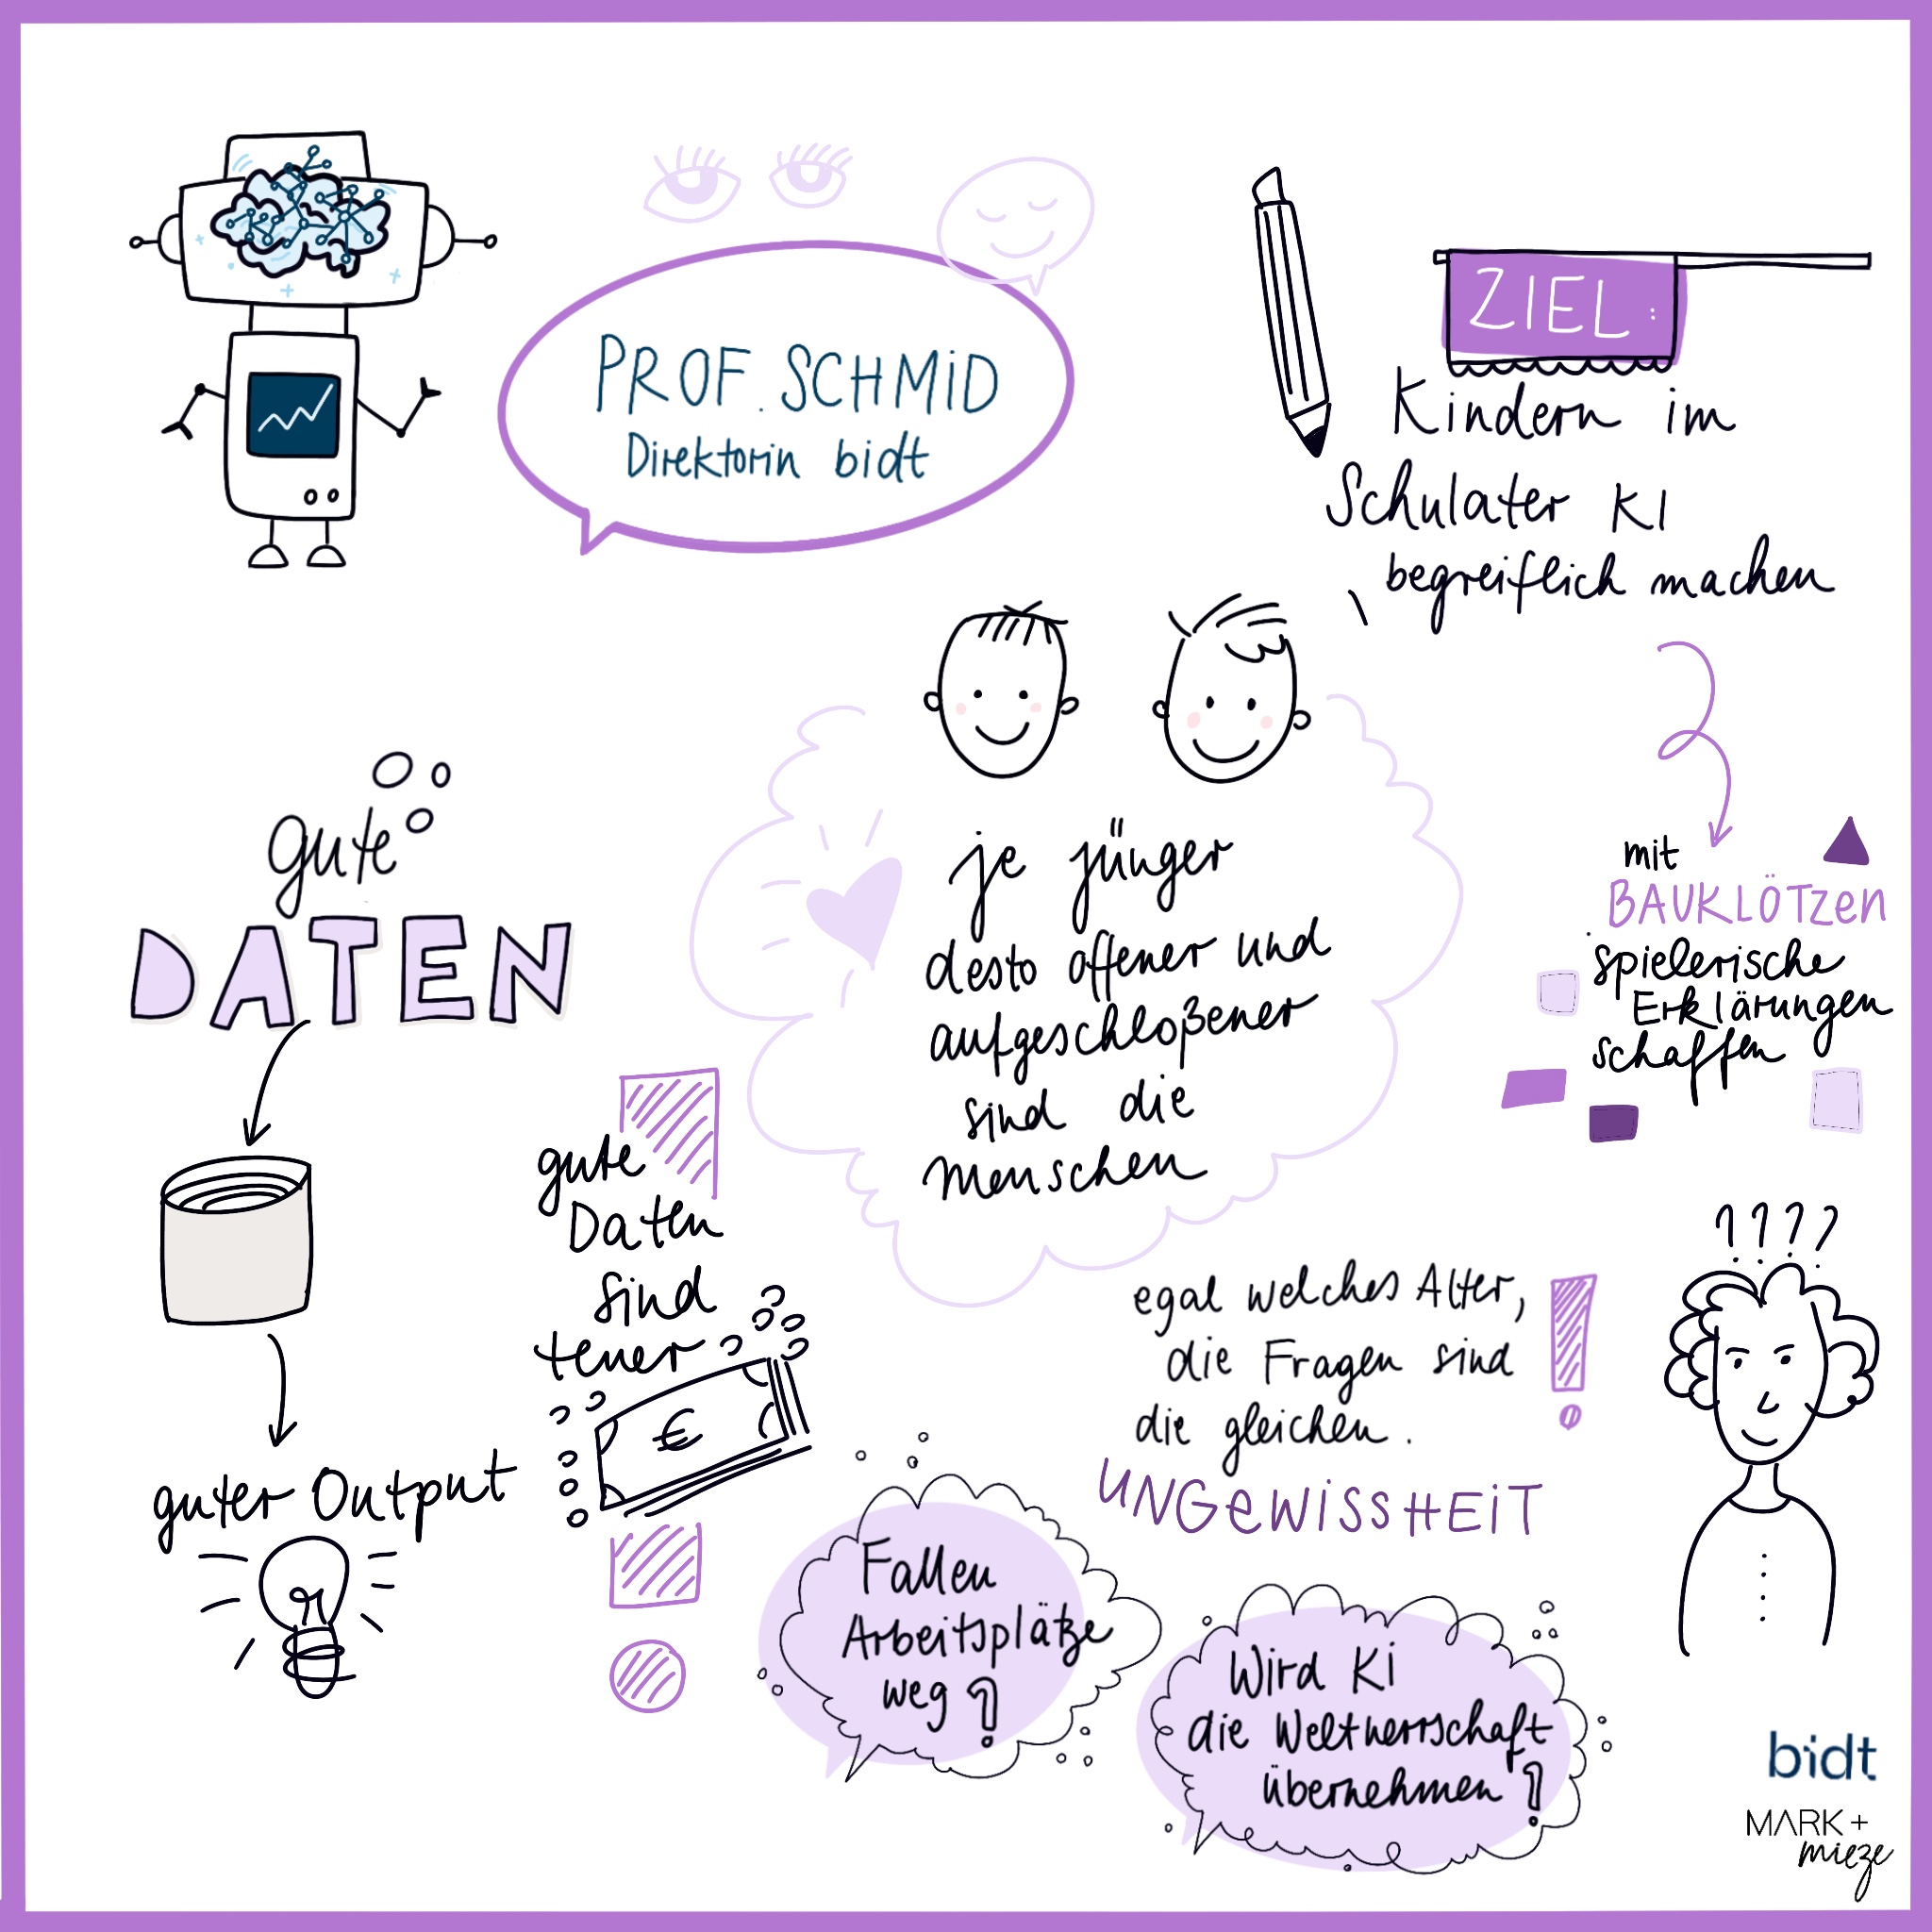 PROF. SCHMID
Direktorin bidt
ZIEL:
Kindern im
Schulater KI
begreiflich machen
mit
BAUKLÖTZEN
spielerische
Erklärungen
schaffen
je jünger
desto offener und
aufgeschloßener
sind die
Menschen
gute
DATEN
guter Output
gute
Daten
sind
teuer
€
????
egal welches Alter,
die Fragen sind
die gleichen.
!
UNGEWISSHEIT
Fallen
Arbeitsplätze
weg?
Wird KI
die Weltherrschaft
übernehmen?
bidt
MARK +
mieze